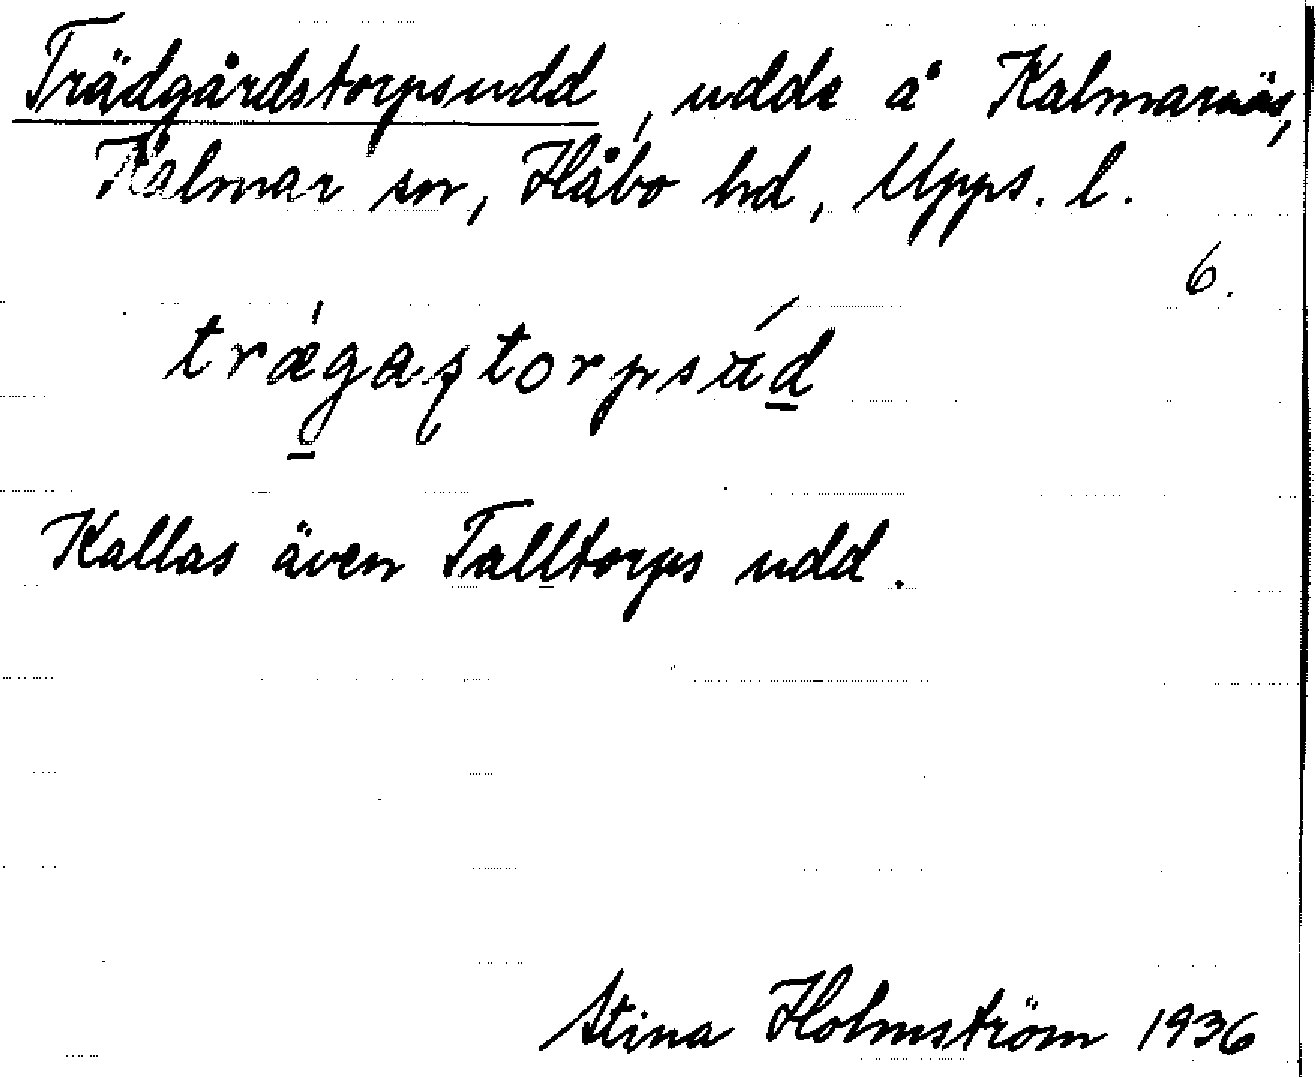 Trädgårdstorpsudd, udde å Kalmarnäs,
Kalmar sn, Håbo hd, Upps. l.
6.
Kallas även Talltorps udd.
Stina Holmström 1936